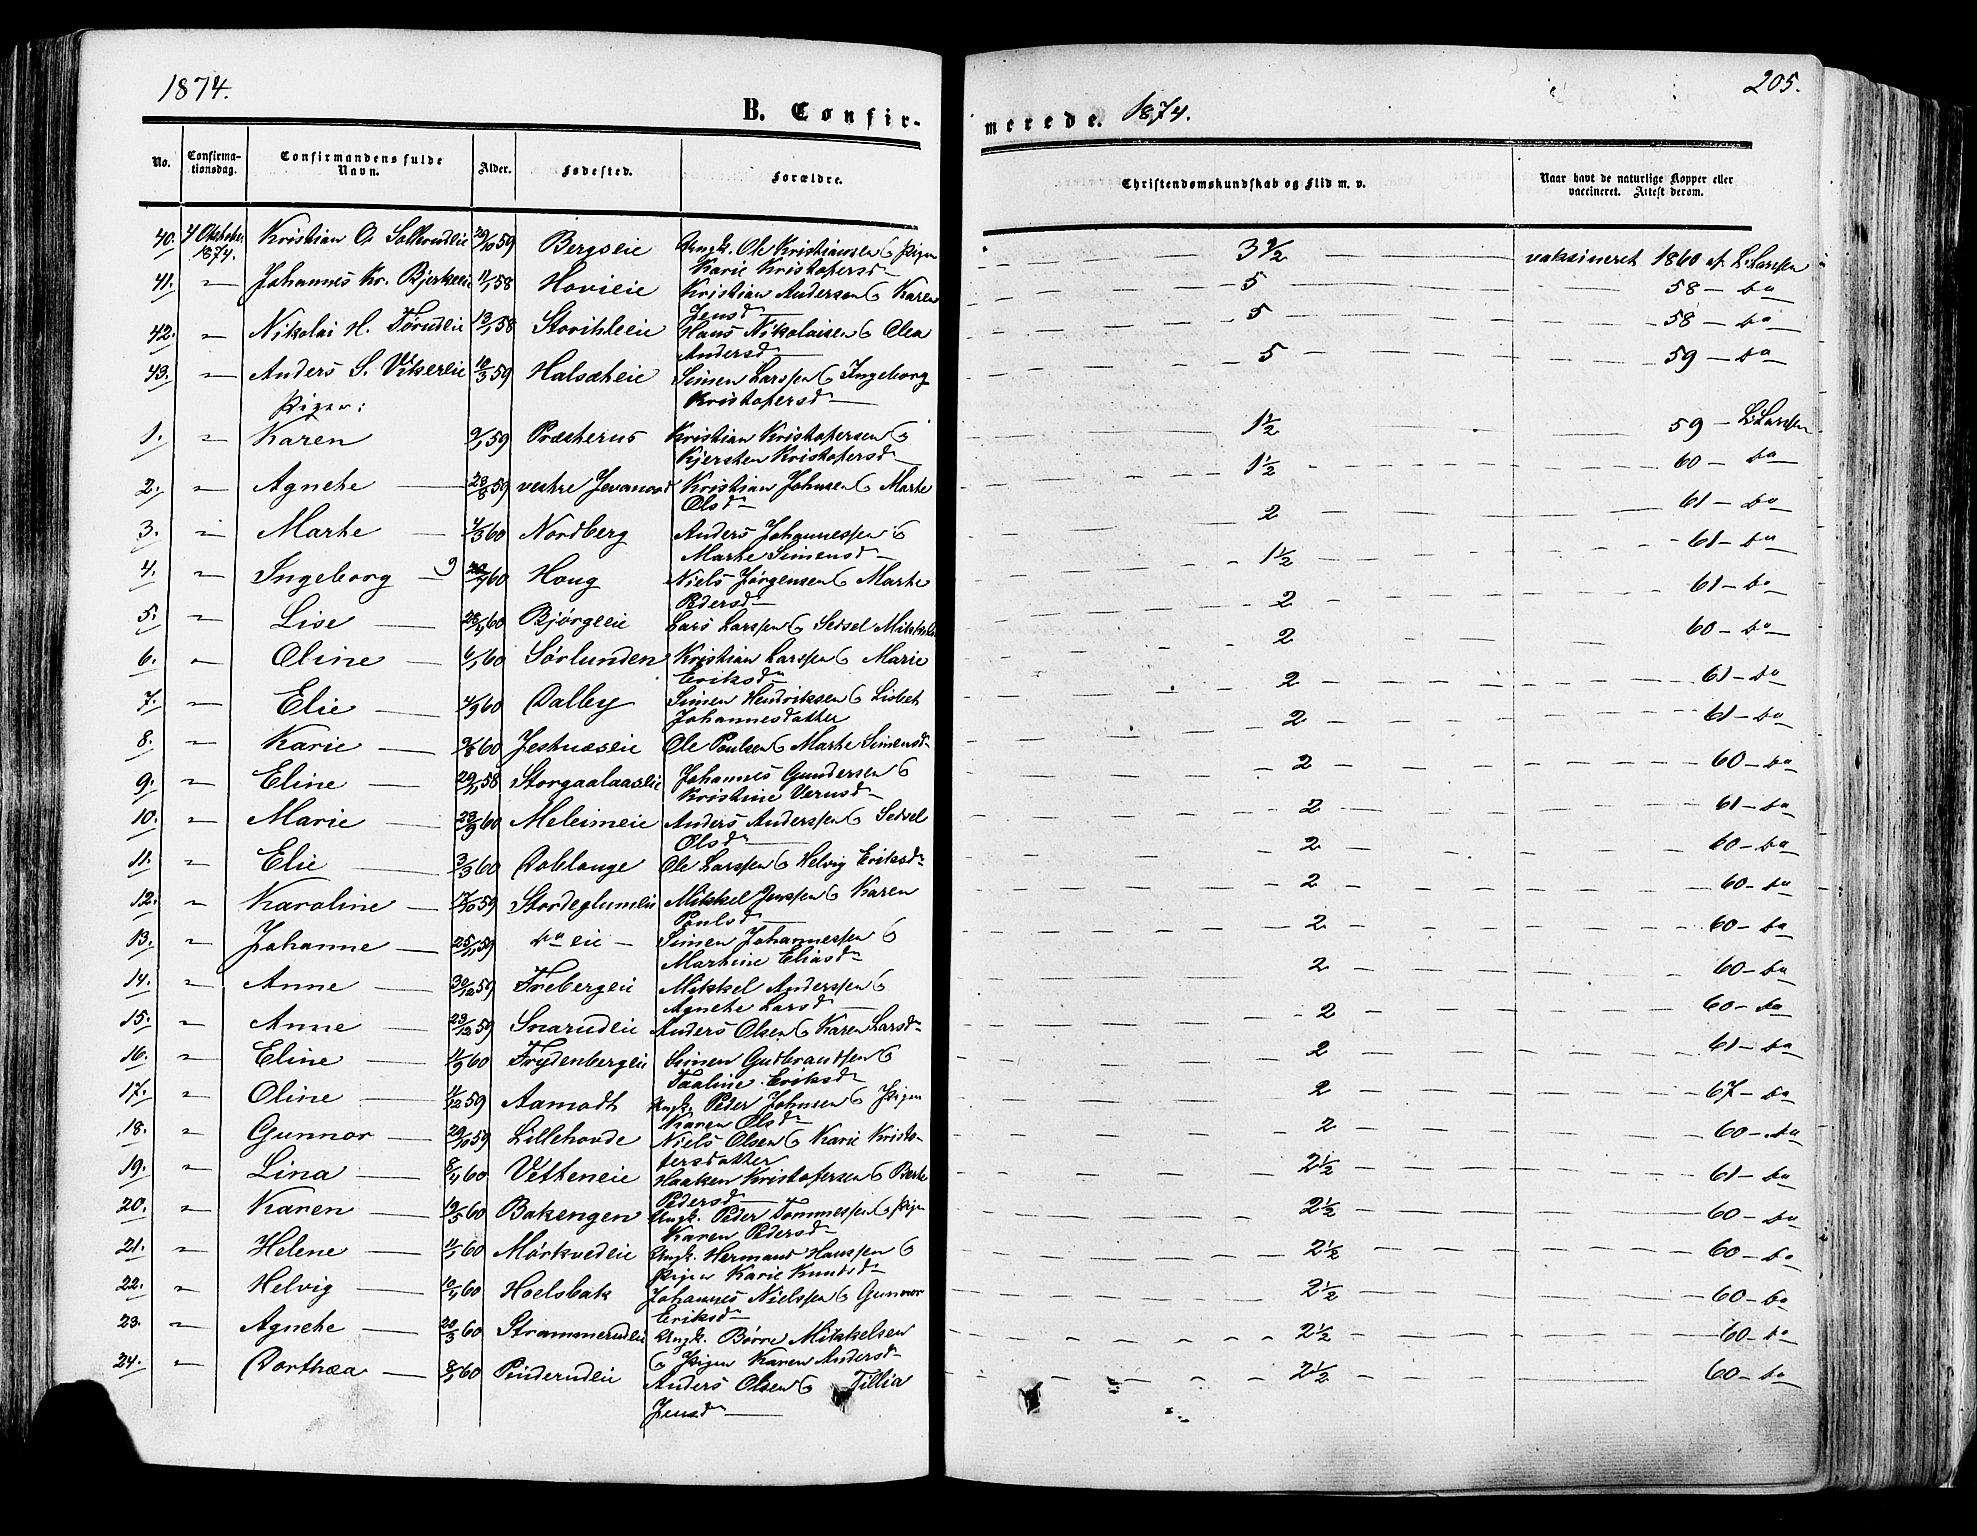 1874.
B. Confir-
merede. 1874.
205.
No. Confirma-tionsdag. Confirmandens fulde Navn. Alder. Fødested. Forældre. Christendomskundskab og Flid m. v. Naar havt de naturlige Kopper eller vaccineret. Attest derom.
40. 4 Oktober 1874. Kristian O. 29/10 59 Bergseie Ungk. Ole Kristiansen & Pigen Karie Kristofersdn 3½ vaksineret 1860 af L: Larssen
41. " Johannes Kr. Bjerkeeie 11/1 58 Hovieie Kristian Andersen & Karen Jensdn 5 58 – do
42. " Nikolai H. 13/1 58 Hans Nikolaisen & Olea Andersdn 5 58 – do
43. " Anders S. Vikereie 10/3 59 Halsetheie Simen Larssen & Ingeborg Kristofersdn 5 59 – do
Piger:
1. " Karen 9/1 59 Præsterus Kristian Kristofersen & Kjersten Kristofersdn 1½ 59 – L: Larssen
2. " Agnethe 28/8 59 vestre Jevanord Kristian Johnsen & Marthe Olsdn 1½ 60 – do
3. " Marthe 4/3 60 Nordberg Anders Johannessen & Marthe Simensdn 2 61 – do
4. " Ingeborg 60 Houg Niels Jørgensen & Marthe Pedersdn 1½ 61 – do
5. " Lise 28/4 60 Bjørgeeie Lars Larssen & Sidsel 2 61 – do
6. " Oline 6/1 60 Sørlunden Kristian Larssen & Marie Eriksdn 2 60 – do
7. " Elie 4/9 60 Dalby Simen Hendriksen & Lisbet Johannesdatter 2 61 – do
8. " Karie 9/8 60 Jestnæseie Ole Poulsen & Marthe Simensdn 2 61 – do
9. " Eline 29/1 58 Storgaalaaseie Johannes Gundersen & Kristine Verusdn 2 60 – do
10. " Marie 23/9 60 Meleimeie Anders Anderssen & Sidsel Olsdn 2 61 – do
11. " Elie 3/3 60 Doblouge Ole Larssen & Helvig Eriksdn 2 60 – do
12. " Karoline 17/10 59 Stordeglumeie Mikkel Jenssen & Karen Poulsdn 2 60 – do
13. " Johanne 25/1 59 do eie – Simen Johannessen & Marthine Eliasdn 2 60 – do
14. " Anne 30/12 59 Frebergeie Mikkel Anderssen & Agnethe Larsdn 2 60 – do
15. " Anne 23/12 59 Snarudeie Anders Olsen & Karen Larsdn 2 60 – do
16. " Eline 11/9 60 Frydenbergeie Simen Gudbrandsen & Taaline Eriksdn 2 61 – do
17. " Oline 1/12 59 Aamodt Ungk. Peder Johnsen & Pigen Karen Olsdn 2 67 – do
18. " Gunnor 29/10 59 Lillehovde Niels Olsen & Karie Kristo-fersdatter 2 60 – do
19. " Lina 8/4 60 Vetteneie Haaken Kristofersen & Berthe Pedersdn 2½ 61 – do
20. " Karen 19/5 60 Bakengen Ungk. Peder Tommessen & Pigen Karen Pedersdn 2½ 60 – do
21. " Helene 11/1 60 Mørkvedeie Ungk. Hermand Hanssen & Pigen Karie Knudsdn 2½ 60 – do
22. " Helvig 10/4 60 Hoelsbak Johannes Nielssen & Gunnor Eriksdn 2½ 60 – do
23. " Agnethe 20/3 60 Strammerudeie Ungk. Børre Mikkelsen & Pigen Karen Andersdn 2½ 60 – do
24. " Dorthea 8/1 60 Pinderudeie Anders Olsen & Tillia Jensdn 2½ 60 – do